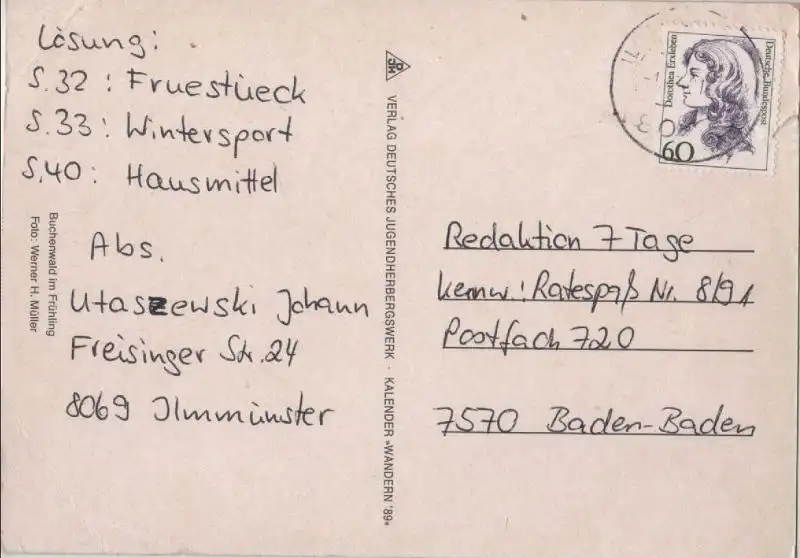 Lösung:
S.32: Fruestüeck
S.33: Wintersport
S.40: Hausmittel
Abs.
Utaszewski Johann
Freisinger Str. 24
8069 Ilmmünster
Buchenwald im Frühling
Foto: Werner H. Müller
DJH
VERLAG DEUTSCHES JUGENDHERBERGSWERK · KALENDER »WANDERN '89«
Deutsche Bundespost
Dorothea Erxleben
60
Redaktion 7 Tage
Kennw.: Ratespaß Nr. 8/91
Postfach 720
7570 Baden-Baden